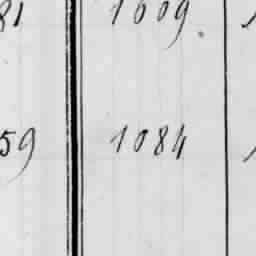 81 1009
59 1084